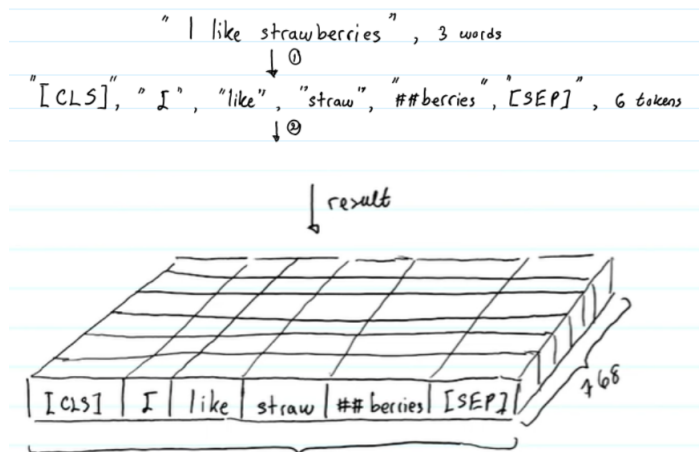 "I like strawberries", 3 words
①
"[CLS]", "I", "like", "straw", "##berries", "[SEP]", 6 tokens
②
result
[CLS] I like straw ##berries [SEP]
768